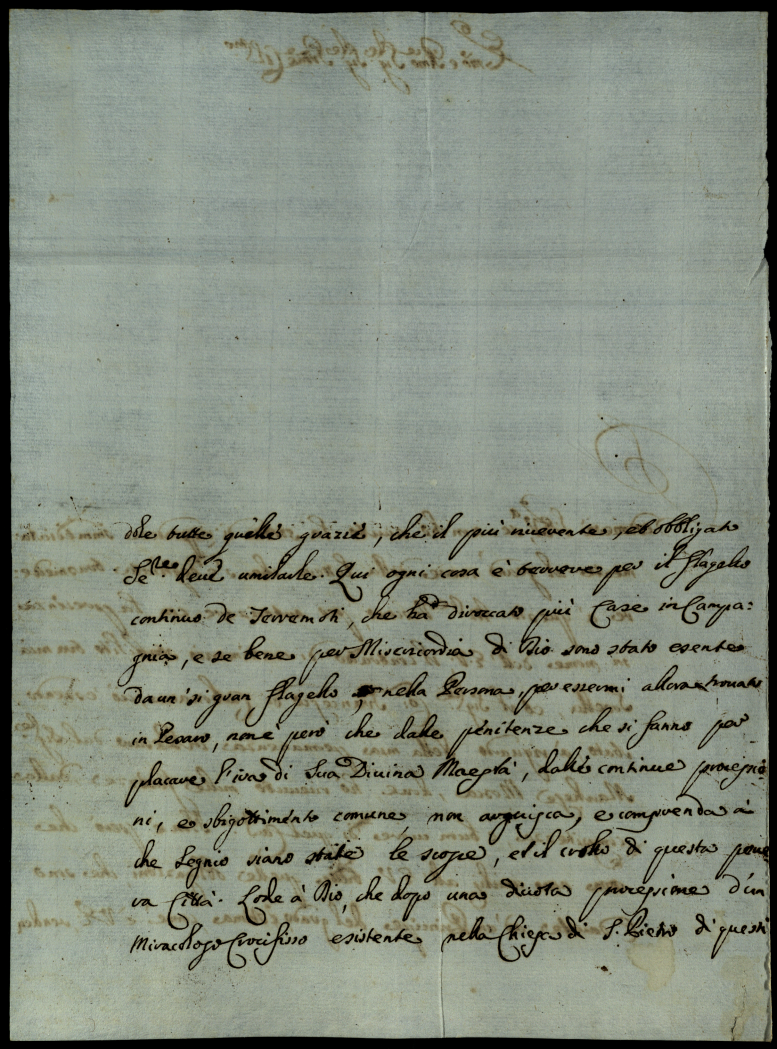 dole tutte quelle grazie, che il più riverente, ed obbligato
Se.re deve umiliarle. Qui ogni cosa è terrore per il flagello
continuo de Terremoti, che hà diroccato più Case in Campa:
gnia, e se bene per Misericordia di Dio sono stato esente
da un' si gran flagello, nella Persona, per essermi allora trovato
in Pesaro, non è però che dalle penitenze che si fanno per
placare l'ira di Sua Divina Maestà, dalle continue procession
ni, e sbigottimento comune, non arguisca, e comprenda à
che Segno siano state le scosse, ed il crollo di questa pove
ra Città. Lode à Dio, che dopo una divota processione d'un
Miracoloso Crocifisso esistente nella Chiesa di S. Pietro di questi